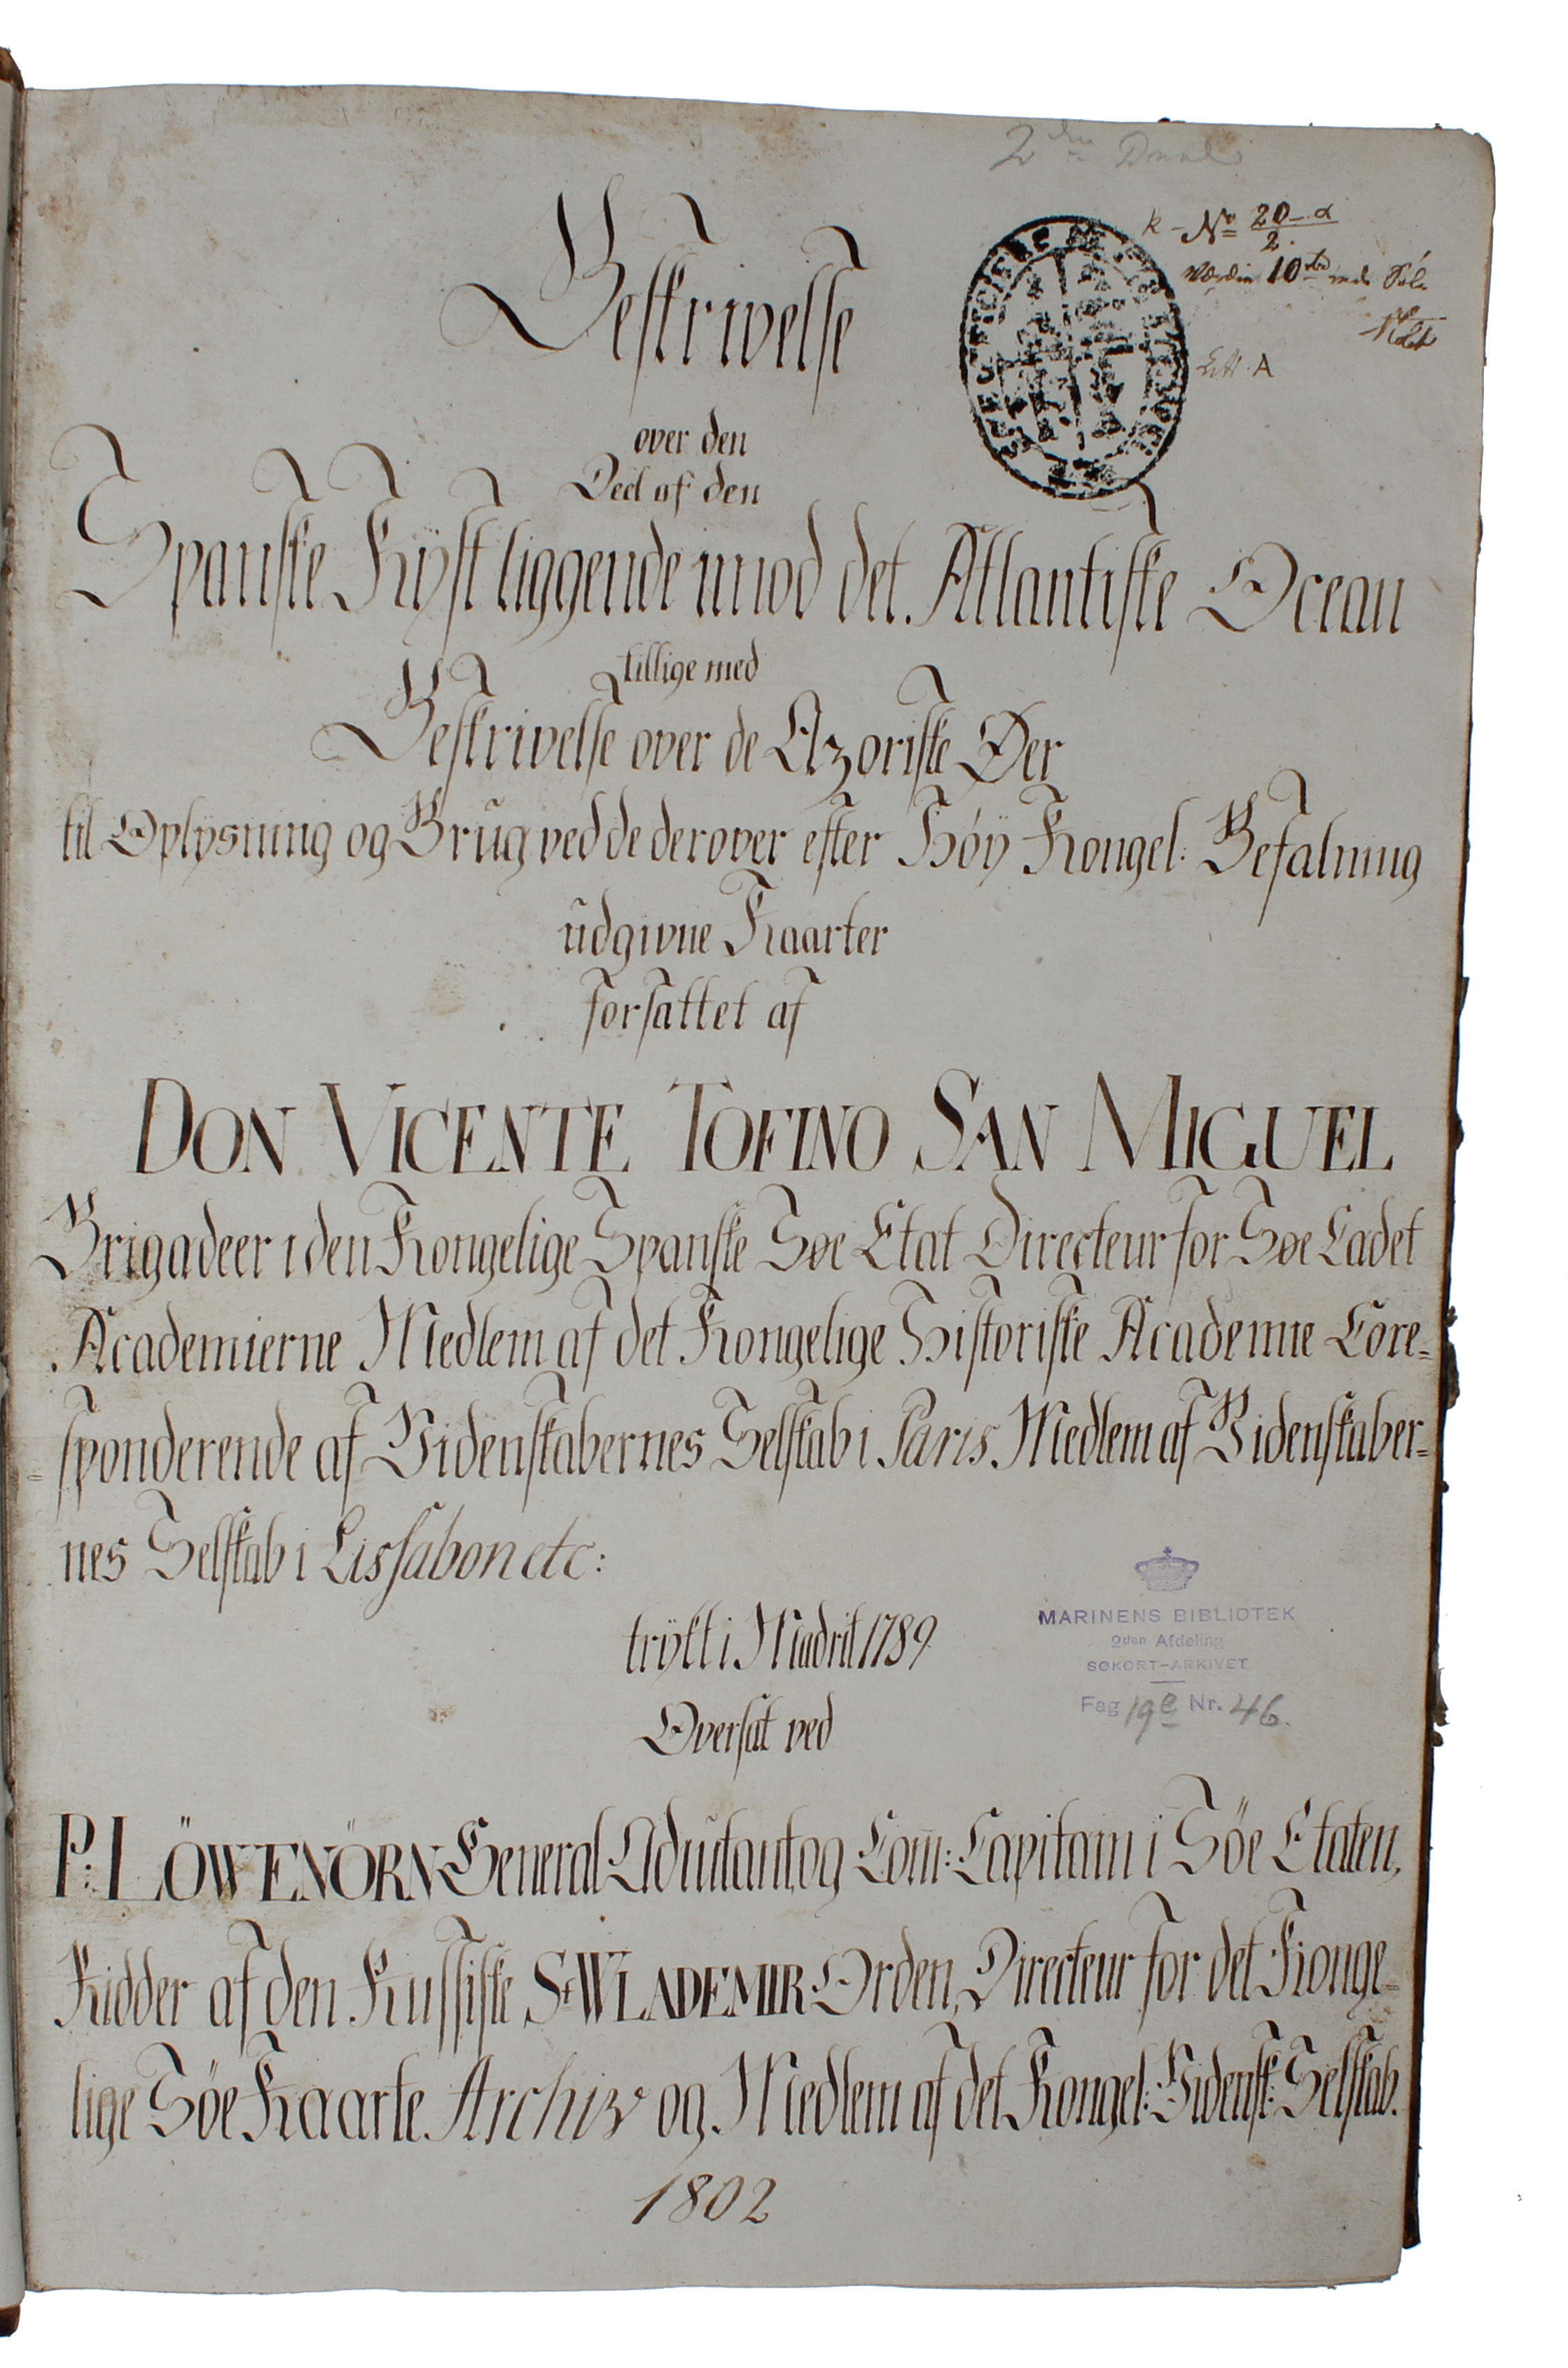 2den
k - No 20-α
2.
10
Litt A
Beskrivelse
over den
Deel af den
Spanske Kÿst liggende imod det Atlantiske Ocean
tillige med
Beskrivelse over de Azoriske Øer
til Oplysning og Brug ved de derover efter Høÿ Kongel: Befalning
udgivne Kaarter
forfattet af
DON VICENTE TOFINO SAN MIGUEL
Brigadeer i den Kongelige Spanske Søe Etat Directeur for Søe Cadet
Academierne Medlem af det Kongelige Historiske Academie Core=
=sponderende af Videnskabernes Selskab i Paris. Medlem af Videnskaber=
nes Selskab i Lissabon etc:
trÿkt i Madrit 1789
Oversat ved
MARINENS BIBLIOTEK
2den Afdeling
SØKORT-ARKIVET
Fag 19e Nr. 46.
P: LÖWENÖRN General Adjutant og Com: Capitain i Söe Etaten,
Ridder af den Russiske St WLADEMIR Orden, Directeur for det Konge=
lige Söe Kaarte Archiv og Medlem af det Kongel: Vidensk: Selskab.
1802